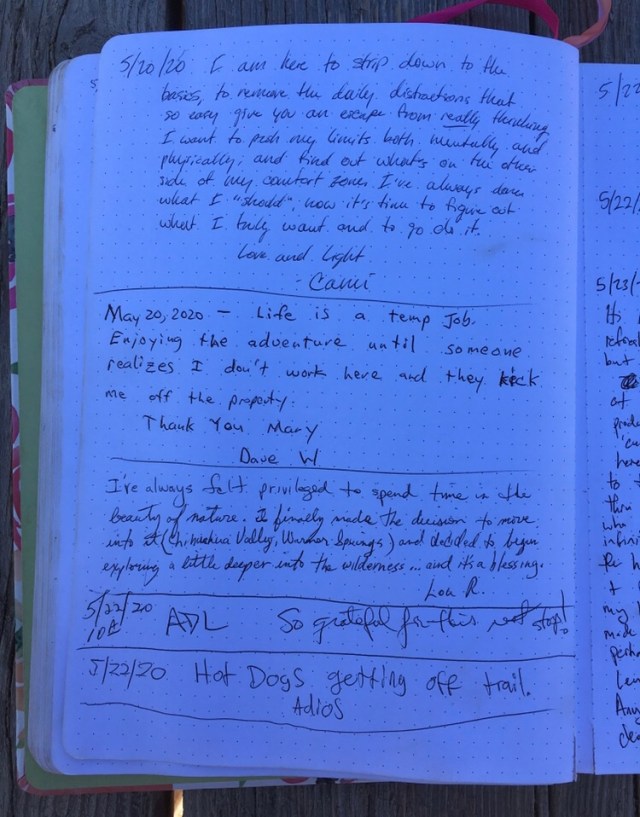 5/20/20 I am here to strip down to the
basics, to remove the daily distractions that
so easy give you an escape from really thinking
I want to push my limits both mentally and
physically, and find out what's on the other
side of my comfort zones. I've always done
what I "should", now it's time to figure out
what I truly want and to go do it.
Love and Light
- Cami
May 20, 2020 - Life is a temp Job.
Enjoying the adventure until someone
realizes I don't work here and they kick
me off the property.
Thank You Mary
Dave W
I've always felt privileged to spend time in the
beauty of nature. I finally made the decision to move
into it (Chihuahua Valley, Warner Springs) and decided to begin
exploring a little deeper into the wilderness... and its a blessing.
Lou R.
5/22/20
ADL So grateful for this rest stop!
5/22/20 Hot Dogs getting off trail.
Adios
5/22
5/22/
5/23/
Its
but
of
here
to
thru
who
my
made